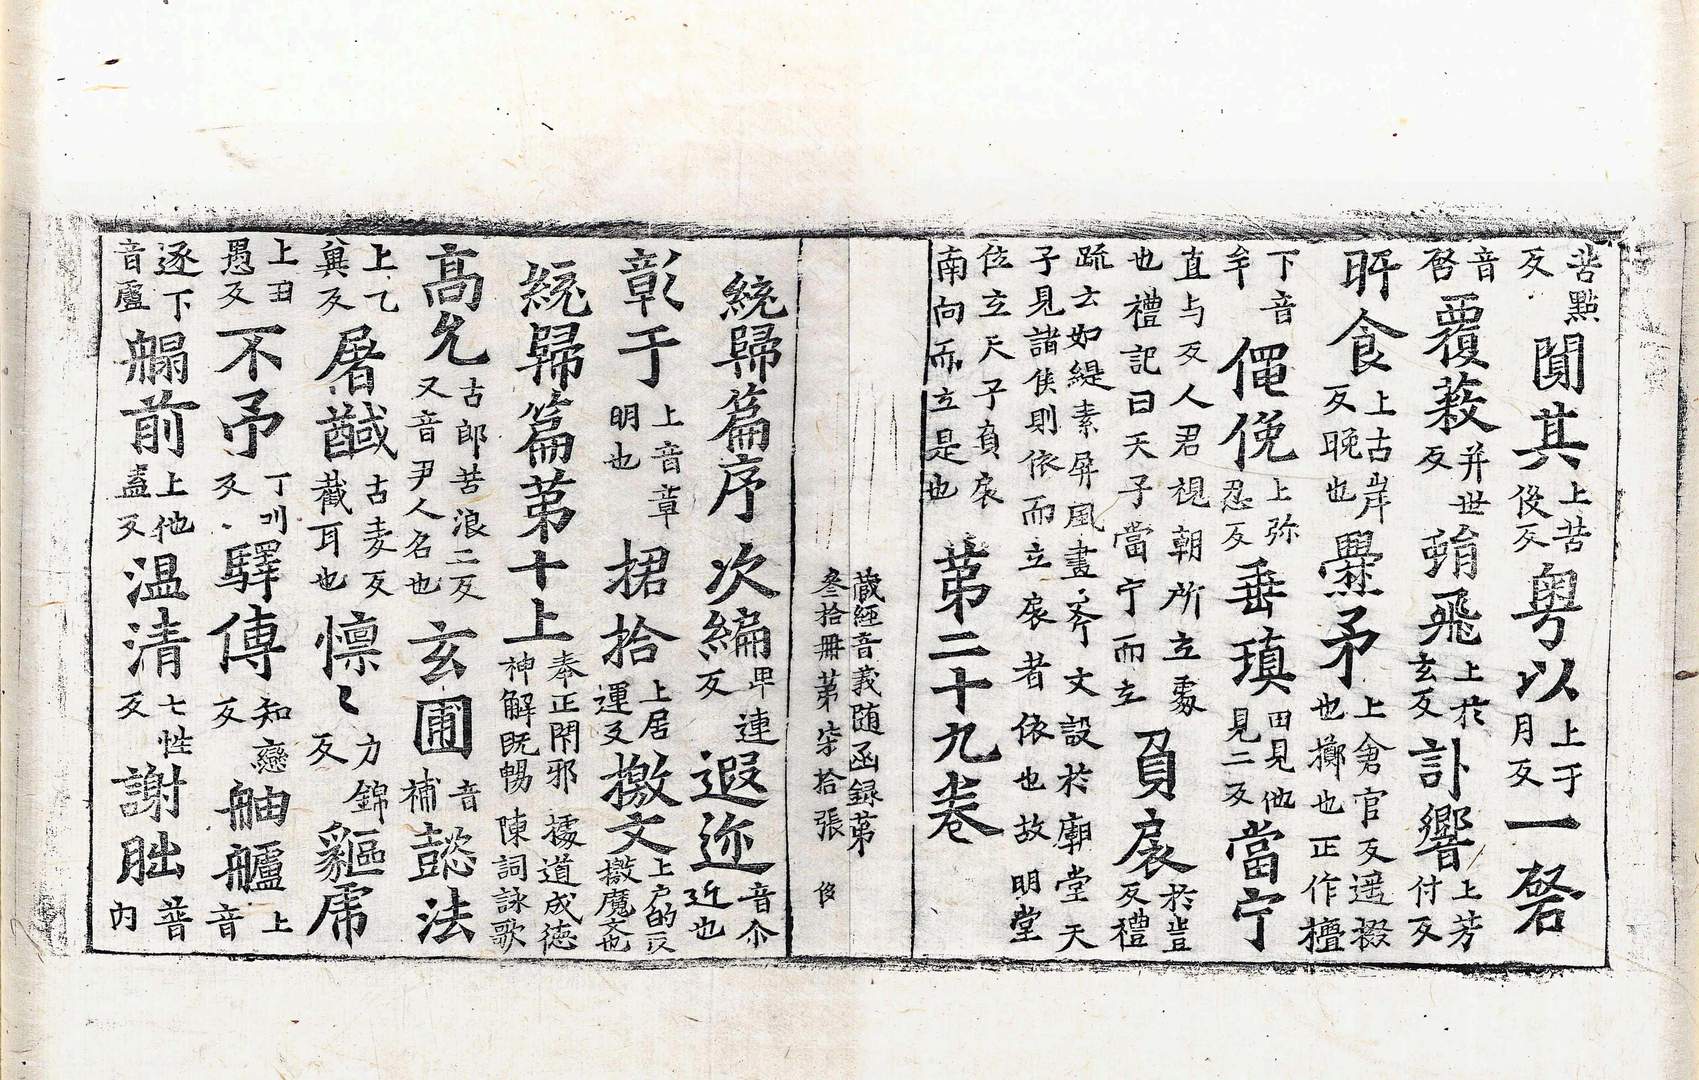 苦點反闃其上苦𠋫反粤以上于月反一啓
音啓覆蔌并世反蜎飛上於玄反訃響上芳付反
旰食上古岸反晚也爨矛上倉官反遥掇也擲也正作𥎞
下音牟僶俛上弥忍反垂瑱田見他見二反當宁
直与反人君視朝所立處也禮記曰天子當宁而立負扆於豈反禮
䟽云如緹素屏風畫斧文設於廟堂天子見諸侯則依而立扆者依也故明堂
位立天子負扆南向而立是也第二十九卷
藏經音義隨函録第叁拾冊第柒拾張 侈
統歸篇序次編卑連反遐迩音尒近也
彰于上音章明也捃拾上居運反檄文上戶的反檄魔文也
統歸篇第十上奉正閇邪神解既暢據道成德陳詞詠歌
高允古郎苦浪二反又音尹人名也玄圃音補懿法
上乙兾反屠馘古麦反截耳也懔〻力錦反貙虎
上丑愚反不予丁刂反驛傳知戀反舳艫上音
逐下音盧艊前上他盍反温清七性反謝朏普內